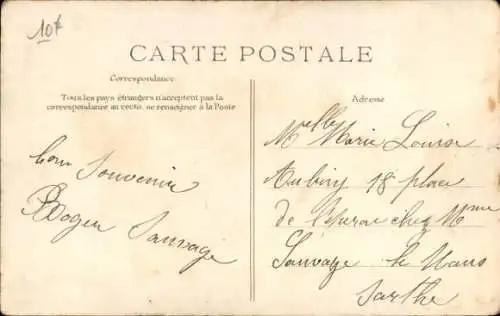 10f
CARTE POSTALE
Correspondance
Tous les pays étrangers n'acceptent pas la
correspondance au recto, se renseigner à la Poste
Adresse
bon Souvenir
Roger Sauvage
Melle Marie Louise
Aubiny 18 place
de l'Eurai chez Mme
Sauvage le Mans
Sarthe